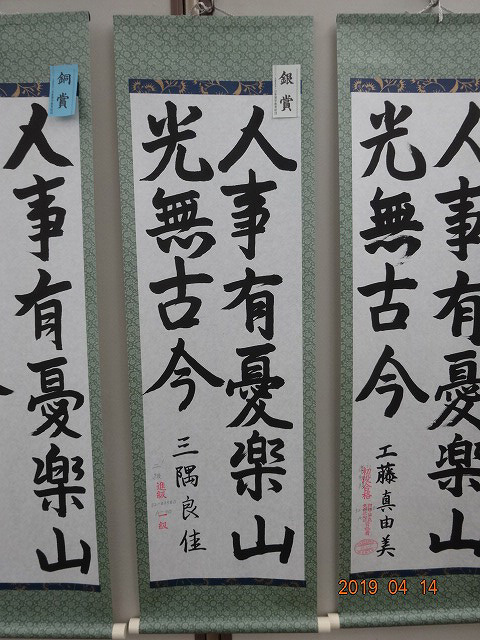 人事有憂楽山
光無古今
工藤真由美
初段合格
銀賞
人事有憂楽山
光無古今
三隅良佳
進級 一級
銅賞
人事有憂楽山
2019 04 14